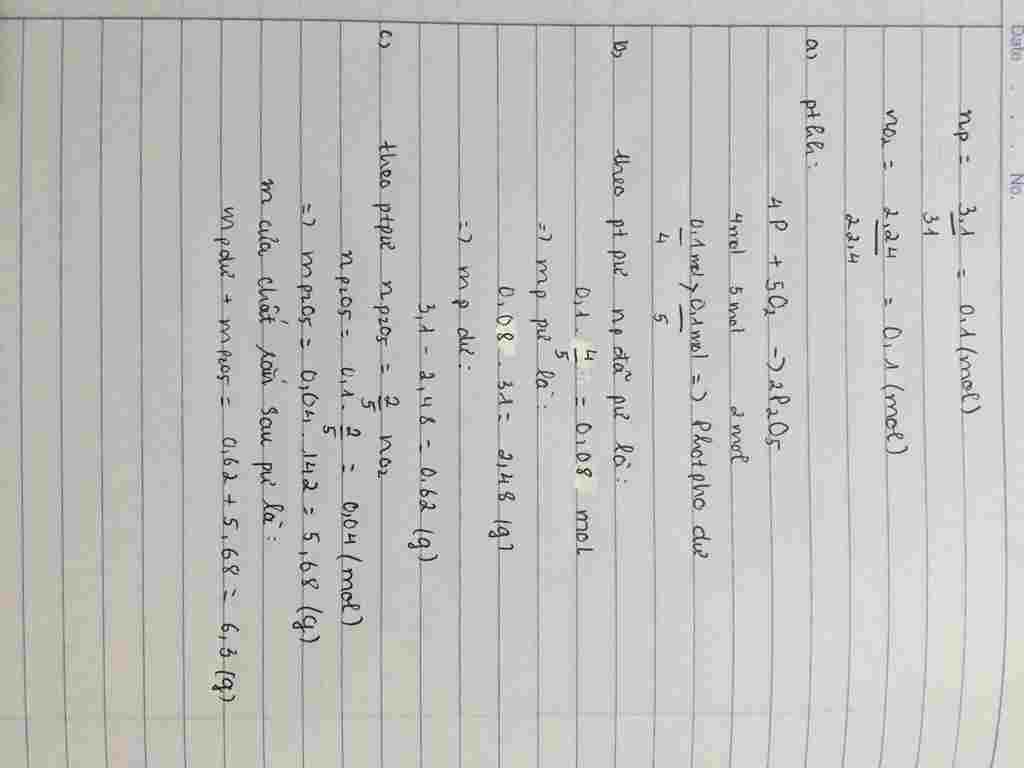 Date . . . No.
np = 3,1 / 31 = 0,1 (mol)
no2 = 2,24 / 22,4 = 0,1 (mol)
a) pthh:
4P + 5O2 -> 2P2O5
4mol 5mol 2mol
0,1mol / 4 > 0,1mol / 5 => Photpho dư
b) theo pt pư np đã pư là:
0,1 . 4/5 = 0,08 mol
=> mp pư là:
0,08 . 31 = 2,48 (g)
=> mp dư:
3,1 - 2,48 = 0,62 (g)
c) theo ptpư nP2O5 = 2/5 no2
nP2O5 = 0,1 . 2/5 = 0,04 (mol)
=> mP2O5 = 0,04 . 142 = 5,68 (g)
m của chất rắn sau pư là:
mp dư + mP2O5 = 0,62 + 5,68 = 6,3 (g)